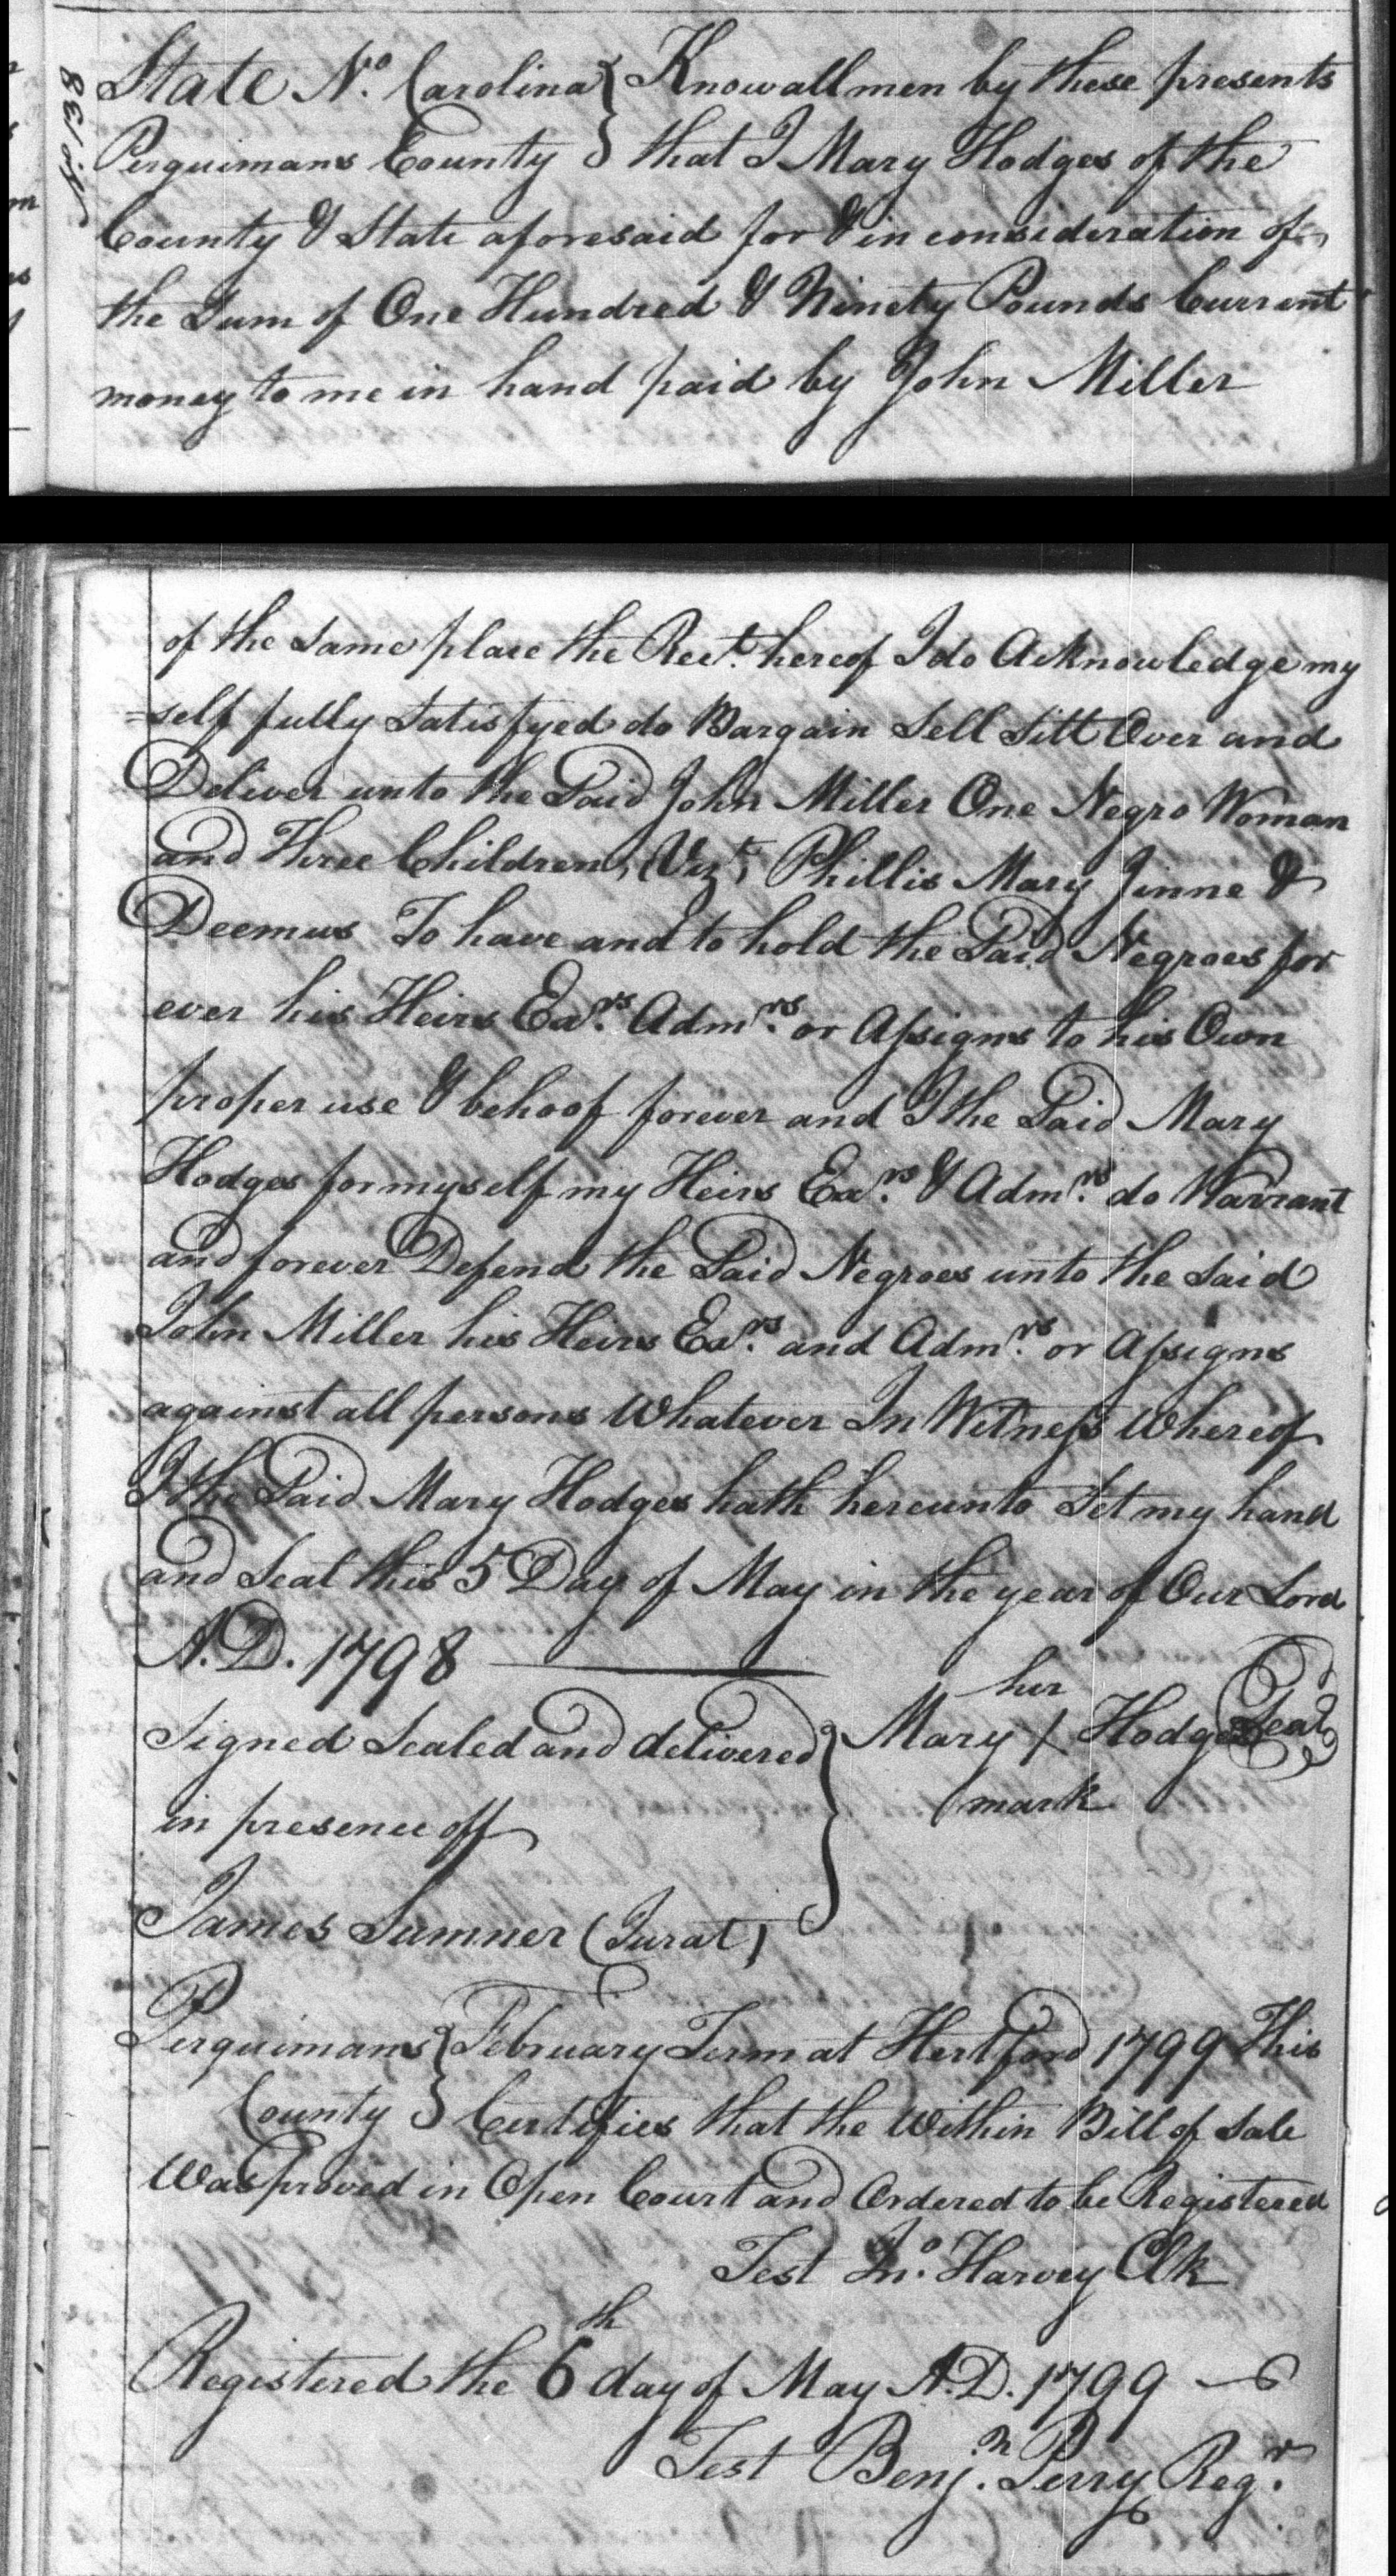 No. 138
State No. Carolina } Know all men by these presents
Perquimans County } that I Mary Hodges of the
County & State aforesaid for & in consideration of
the Sum of One Hundred & Ninety Pounds Current
money to me in hand paid by John Miller
of the Same place the Rect. hereof I do Acknowledge my
=self fully Satisfyed do Bargain Sell Sett Over and
Deliver unto the Said John Miller One Negro Woman
and Three Children, (Vizt) Phillis Mary Jinne &
Deemus To have and to hold the Said Negroes for
ever his Heirs Exrs. Admrs. or Assigns to his Own
proper use & behoof forever and I the Said Mary
Hodges for myself my Heirs Exrs. & Admrs. do Warrant
and forever Defend the Said Negroes unto the Said
John Miller his Heirs Exrs. and Admrs. or Assigns
against all persons Whatever In Witness Whereof
I the Said Mary Hodges hath hereunto Set my hand
and Seal this 5 Day of May in the year of Our Lord
A.D. 1798
her
Signed Sealed and delivered } Mary / Hodges Seal
mark
in presence off
James Sumner (Jurat)
Perquimans } February Term at Hertford 1799 This
County } Certifies that the Within Bill of Sale
Was proved in Open Court and Ordered to be Registered
Test Jno. Harvey Clk
Registered the 6th day of May A.D. 1799
Test Benjn. Perry Regr.